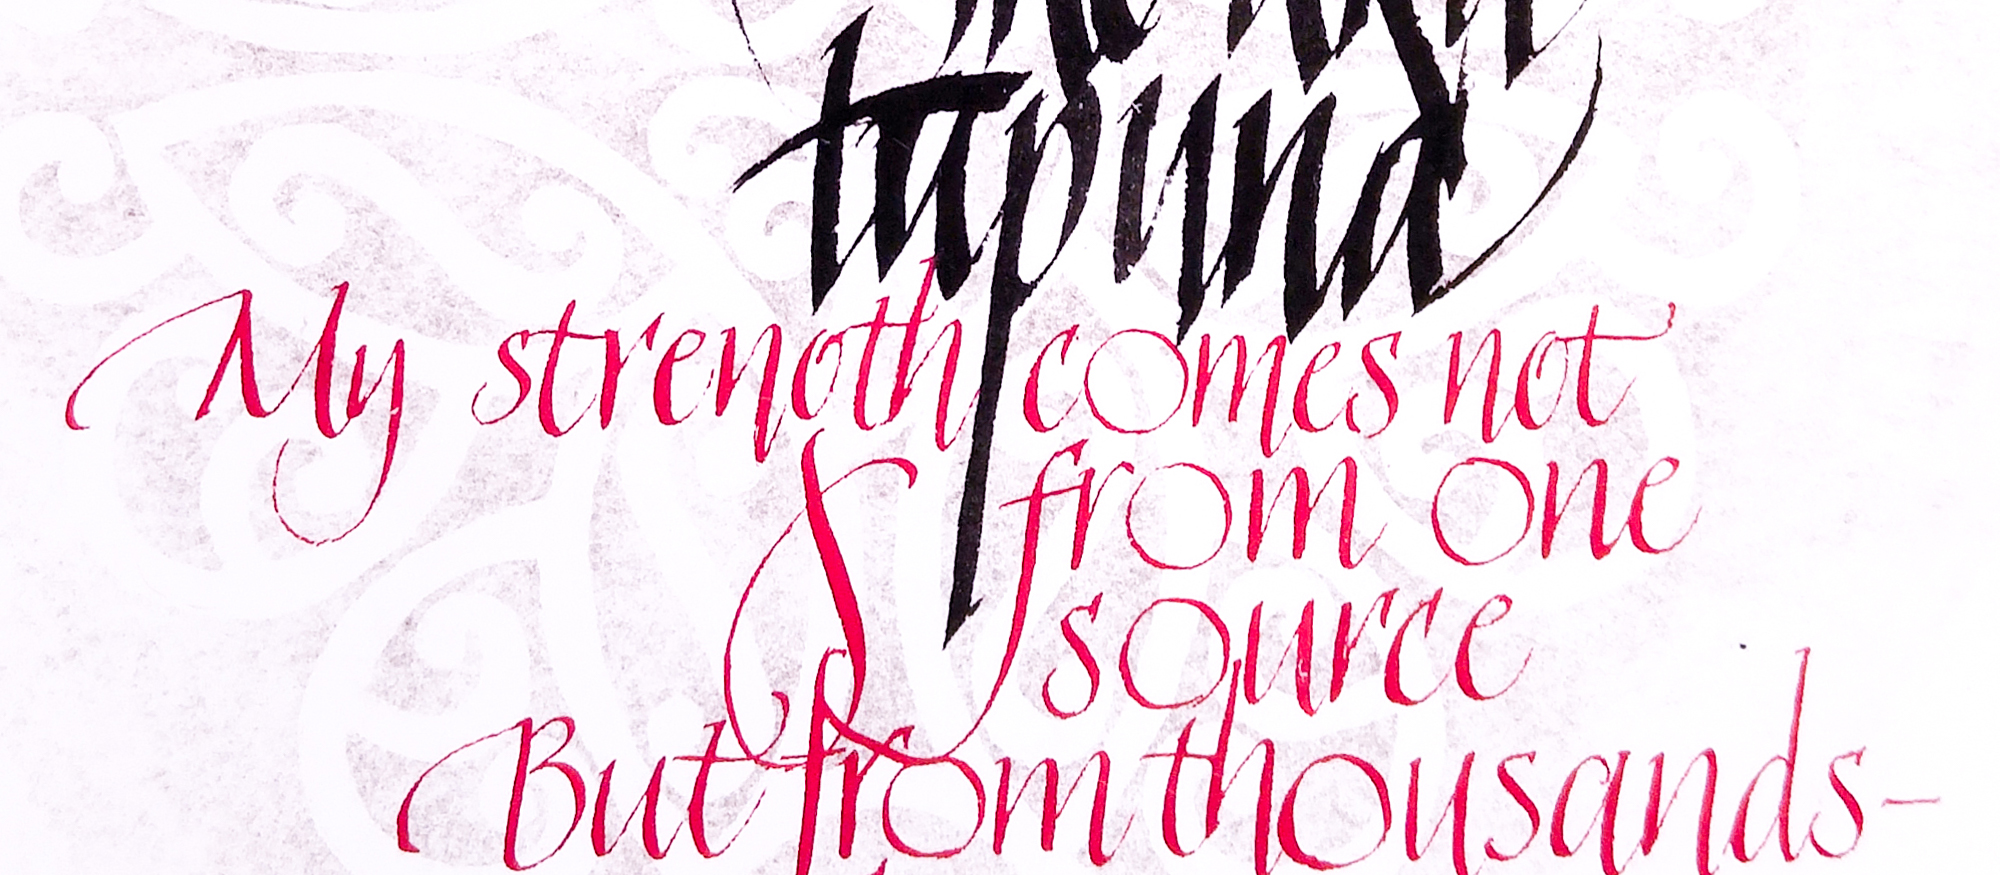 tupuna
My strength comes not
from one
source
But from thousands-